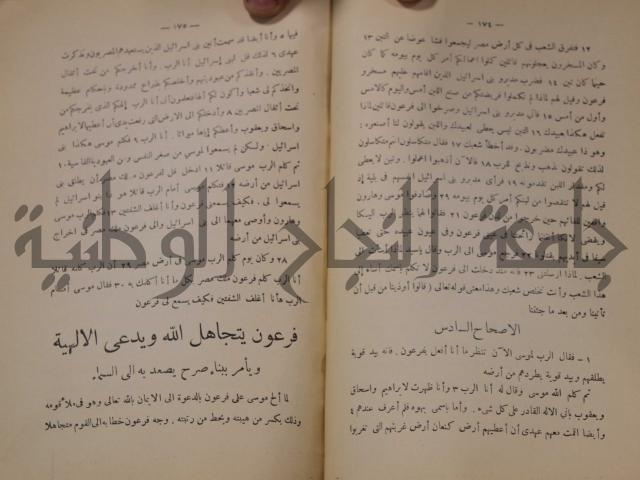 — ١٧٤ —
١٢ فتفرق الشعب فى كل أرض مصر ليجمعوا قشا عوضا عن التبن ١٣
وكان المسخرون يعجلونهم قائلين كملوا أعمالكم أمر كل يوم بيومه كما كان
حينما كان تبن ١٤ فضرب مدبرو بنى اسرائيل الذين أقامهم عليهم مسخرو
فرعون وقيل لهم لماذا لم تكملوا فريضتكم من صنع اللبن أمس واليوم كالامس
وأول من أمس ١٥ فأتى مدبرو بنى اسرائيل وصرخوا الى فرعون قائلين لماذا
تفعل هكذا بعبيدك ١٦ التبن ليس يعطى لعبيدك واللبن يقولون لنا أصنعوه:
وهو ذا عبيدك مضربون. وقد أخطأ شعبك ١٧ فقال متكاسلون أنتم متكاسلون
لذلك تقولون نذهب ونذبح للرب ١٨ فالآن أذهبوا اعملوا. وتبن لا يعطى
لكم ومقدار اللبن تقدمونه ١٩ فرأى مدبرو بنى اسرائيل أنفسهم فى بلية إذ
قيل لهم لا تنقصوا من لبنكم أمر كل يوم بيومه ٢٠ وصادفوا موسى وهارون
حين خرجوا من فرعون ٢١ فقالوا لهما ينظر الرب اليكما
ويقضى لأنكما أنتنتما رائحتنا فى عينى فرعون وفى عيون عبيده حتى تعطيا
سيفا فى أيديهم ٢٢ فرجع موسى الى الرب وقال ياسيد لماذا أسأت الى
الشعب. لماذا أرسلتنى ٢٣ فانه منذ دخلت الى فرعون لا تكلم باسمك أساء الى
هذا الشعب وأنت لم تخلص شعبك وهذا معنى قوله تعالى (قالوا أوذينا من قبل أن
تأتينا ومن بعد ما جئتنا
الاصحاح السادس
١ – فقال الرب لموسى الآن تنظر ما أنا أفعل بفرعون. فانه بيد قوية
يطلقهم وبيد قوية يطردهم من أرضه
ثم كلم الله موسى وقال له أنا الرب ٣ وأنا ظهرت لابراهيم واسحاق
ويعقوب بأنى الاله القادر على كل شىء. وأما باسمى يهوه فلم أعرف عندهم ٤
وأيضا أقمت معهم عهدى أن أعطيهم أرض كنعان أرض غربتهم التى تغربوا
— ١٧٥ —
فيها ٥ وأنا أيضا قد سمعت أنين بنى اسرائيل الذين يستعبدهم المصريون وتذكرت
عهدى ٦ لذلك قل لبنى إسرائيل أنا الرب. وأنا أخرجكم من تحت أثقال
المصريين. وأنقذكم من عبوديتهم وأخلصكم بذراع ممدودة وبأحكام عظيمة
٧ وأتخذكم لى شعبا وأكون لكم الها فتعلمون أنى أنا الرب إلهكم الذى يخرجكم من
تحت أثقال المصريين ٨ وأدخلكم الى الارض التى رفعت يدى أن أعطيها لابراهيم
واسحاق ويعقوب وأعطيكم إياها ميراثا. أنا الرب ٩ فكلم موسى هكذا بنى
اسرائيل. ولكن لم يسمعوا لموسى من صغر النفس ومن العبودية القاسية ١٠
ثم كلم الرب موسى قائلا ١١ ادخل قل لفرعون ملك مصر أن يطلق بنى
اسرائيل من أرضه ١٢ فتكلم موسى أمام الرب قائلا هو ذا بنو اسرائيل لم
يسمعوا لى. فكيف يسمعنى فرعون وأنا أغلف الشفتين ١٣ فكلم الرب موسى
وهارون وأوصى معهما الى بنى اسرائيل والى فرعون ملك مصر فى اخراج
بنى اسرائيل من أرضه
٢٨ وكان يوم كلم الرب موسى فى أرض مصر ٢٩ أن الرب كلمه قائلا
أنا الرب كلم فرعون ملك مصر بكل ما أنا أكلمك به ٣٠ فقال موسى أمام
الرب ها أنا أغلف الشفتين فكيف يسمع لى فرعون
فرعون يتجاهل الله ويدعى الالهية
ويأمر ببناء صرح يصعد به الى السماء
لما ألح موسى على فرعون بالدعوة الى الايمان بالله تعالى وهو فى ملأ قومه
وذلك يكسر من هيبته ويحط من رتبته. وجه فرعون خطابه الى القوم متجاهلا
جامعة النجاح الوطنية